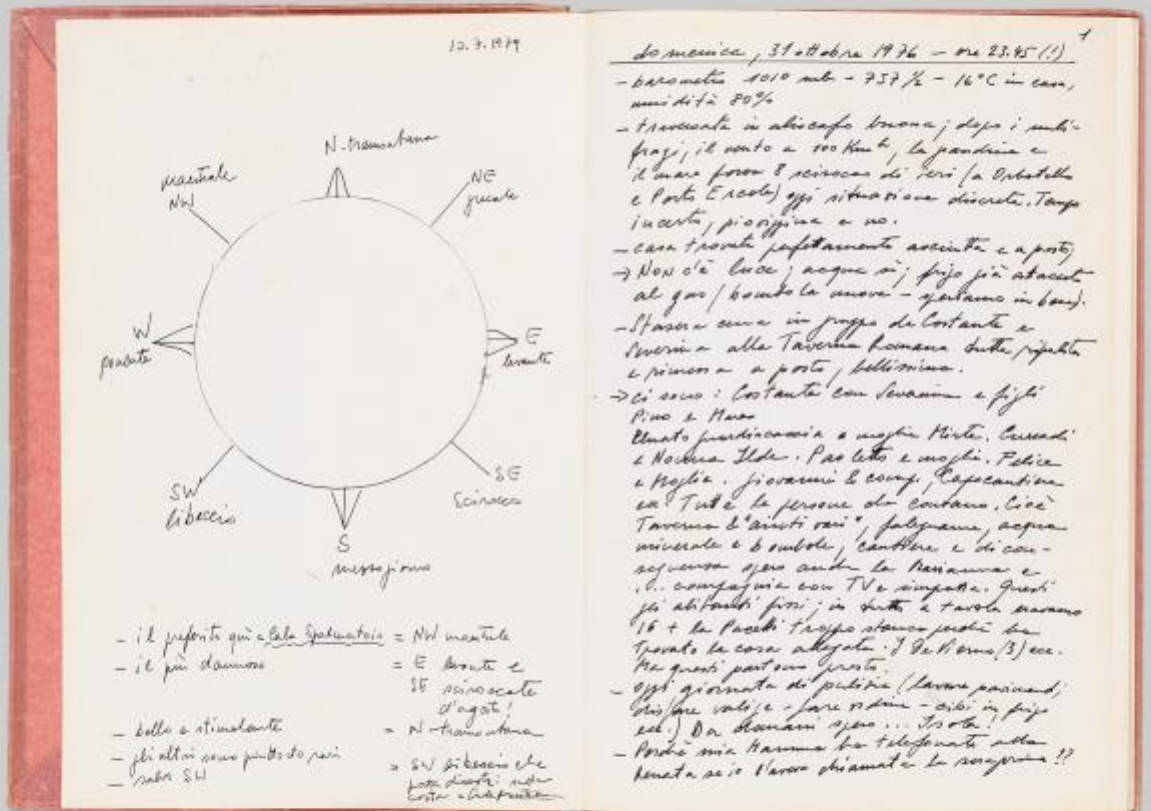 12.7.1979
N-tramontana
maestrale
NW
NE
grecale
W
ponente
E
levante
SW
libeccio
SE
Scirocco
S
mezzogiorno
- il preferito qui a Cala Spalmatoio = NW maestrale
- il più dannoso = E levante e
SE sciroccate
d'agosto!
- bello e stimolante = N-tramontana
- gli altri sono piuttosto rari
- salvo SW = SW libeccio che
1
domenica, 31 ottobre 1976 - ore 23.45 (!)
- barometro 1010 mb - 757 ½ - 16°C in casa,
umidità 80%
- traversata in aliscafo buona; dopo i nubi-
fragi, il vento a 100 Kmh, la grandine e
il mare forza 8 scirocco di ieri (a Orbetello
e Porto Ercole) oggi situazione discreta. Tempo
incerto, pioviggina e no.
- casa trovata perfettamente asciutta e a posto;
→ Non c'è luce; acqua sì; frigo già attaccato
al gas (bombola nuova - speriamo in bene).
- Stasera cena in gruppo da Costante e
Severina alla Taverna Romana tutta ripulita
e rimessa a posto, bellissima.
→ ci sono: Costante con Severina e figli
Pino e
Renato guardiacaccia e moglie Mirte.
e Nonna Ilde. Paoletto e moglie. Felice
e Moglie. Giovanni & comp. Capocantiere
ecc. Tutte le persone che contano. Cioè
Taverna & "aiuti vari", falegname, acqua
minerale e bombole, cantiere e di con-
seguenza spero anche la Marianna e
... compagnia con TV e simpatia. Questi
gli abitanti fissi; in tutti a tavola eravamo
16 + la Pacelli troppo stanca perché ha
trovato la casa allagata. I De (3) ecc.
Ma questi partono presto.
- oggi giornata di pulizia (lavare pavimenti,
disfare valige - fare ordine - cibi in frigo
ecc.) Da domani spero ... Isola!
- Perché mia Mamma ha telefonato alla
Renata se io l'avevo chiamata la sera prima!?